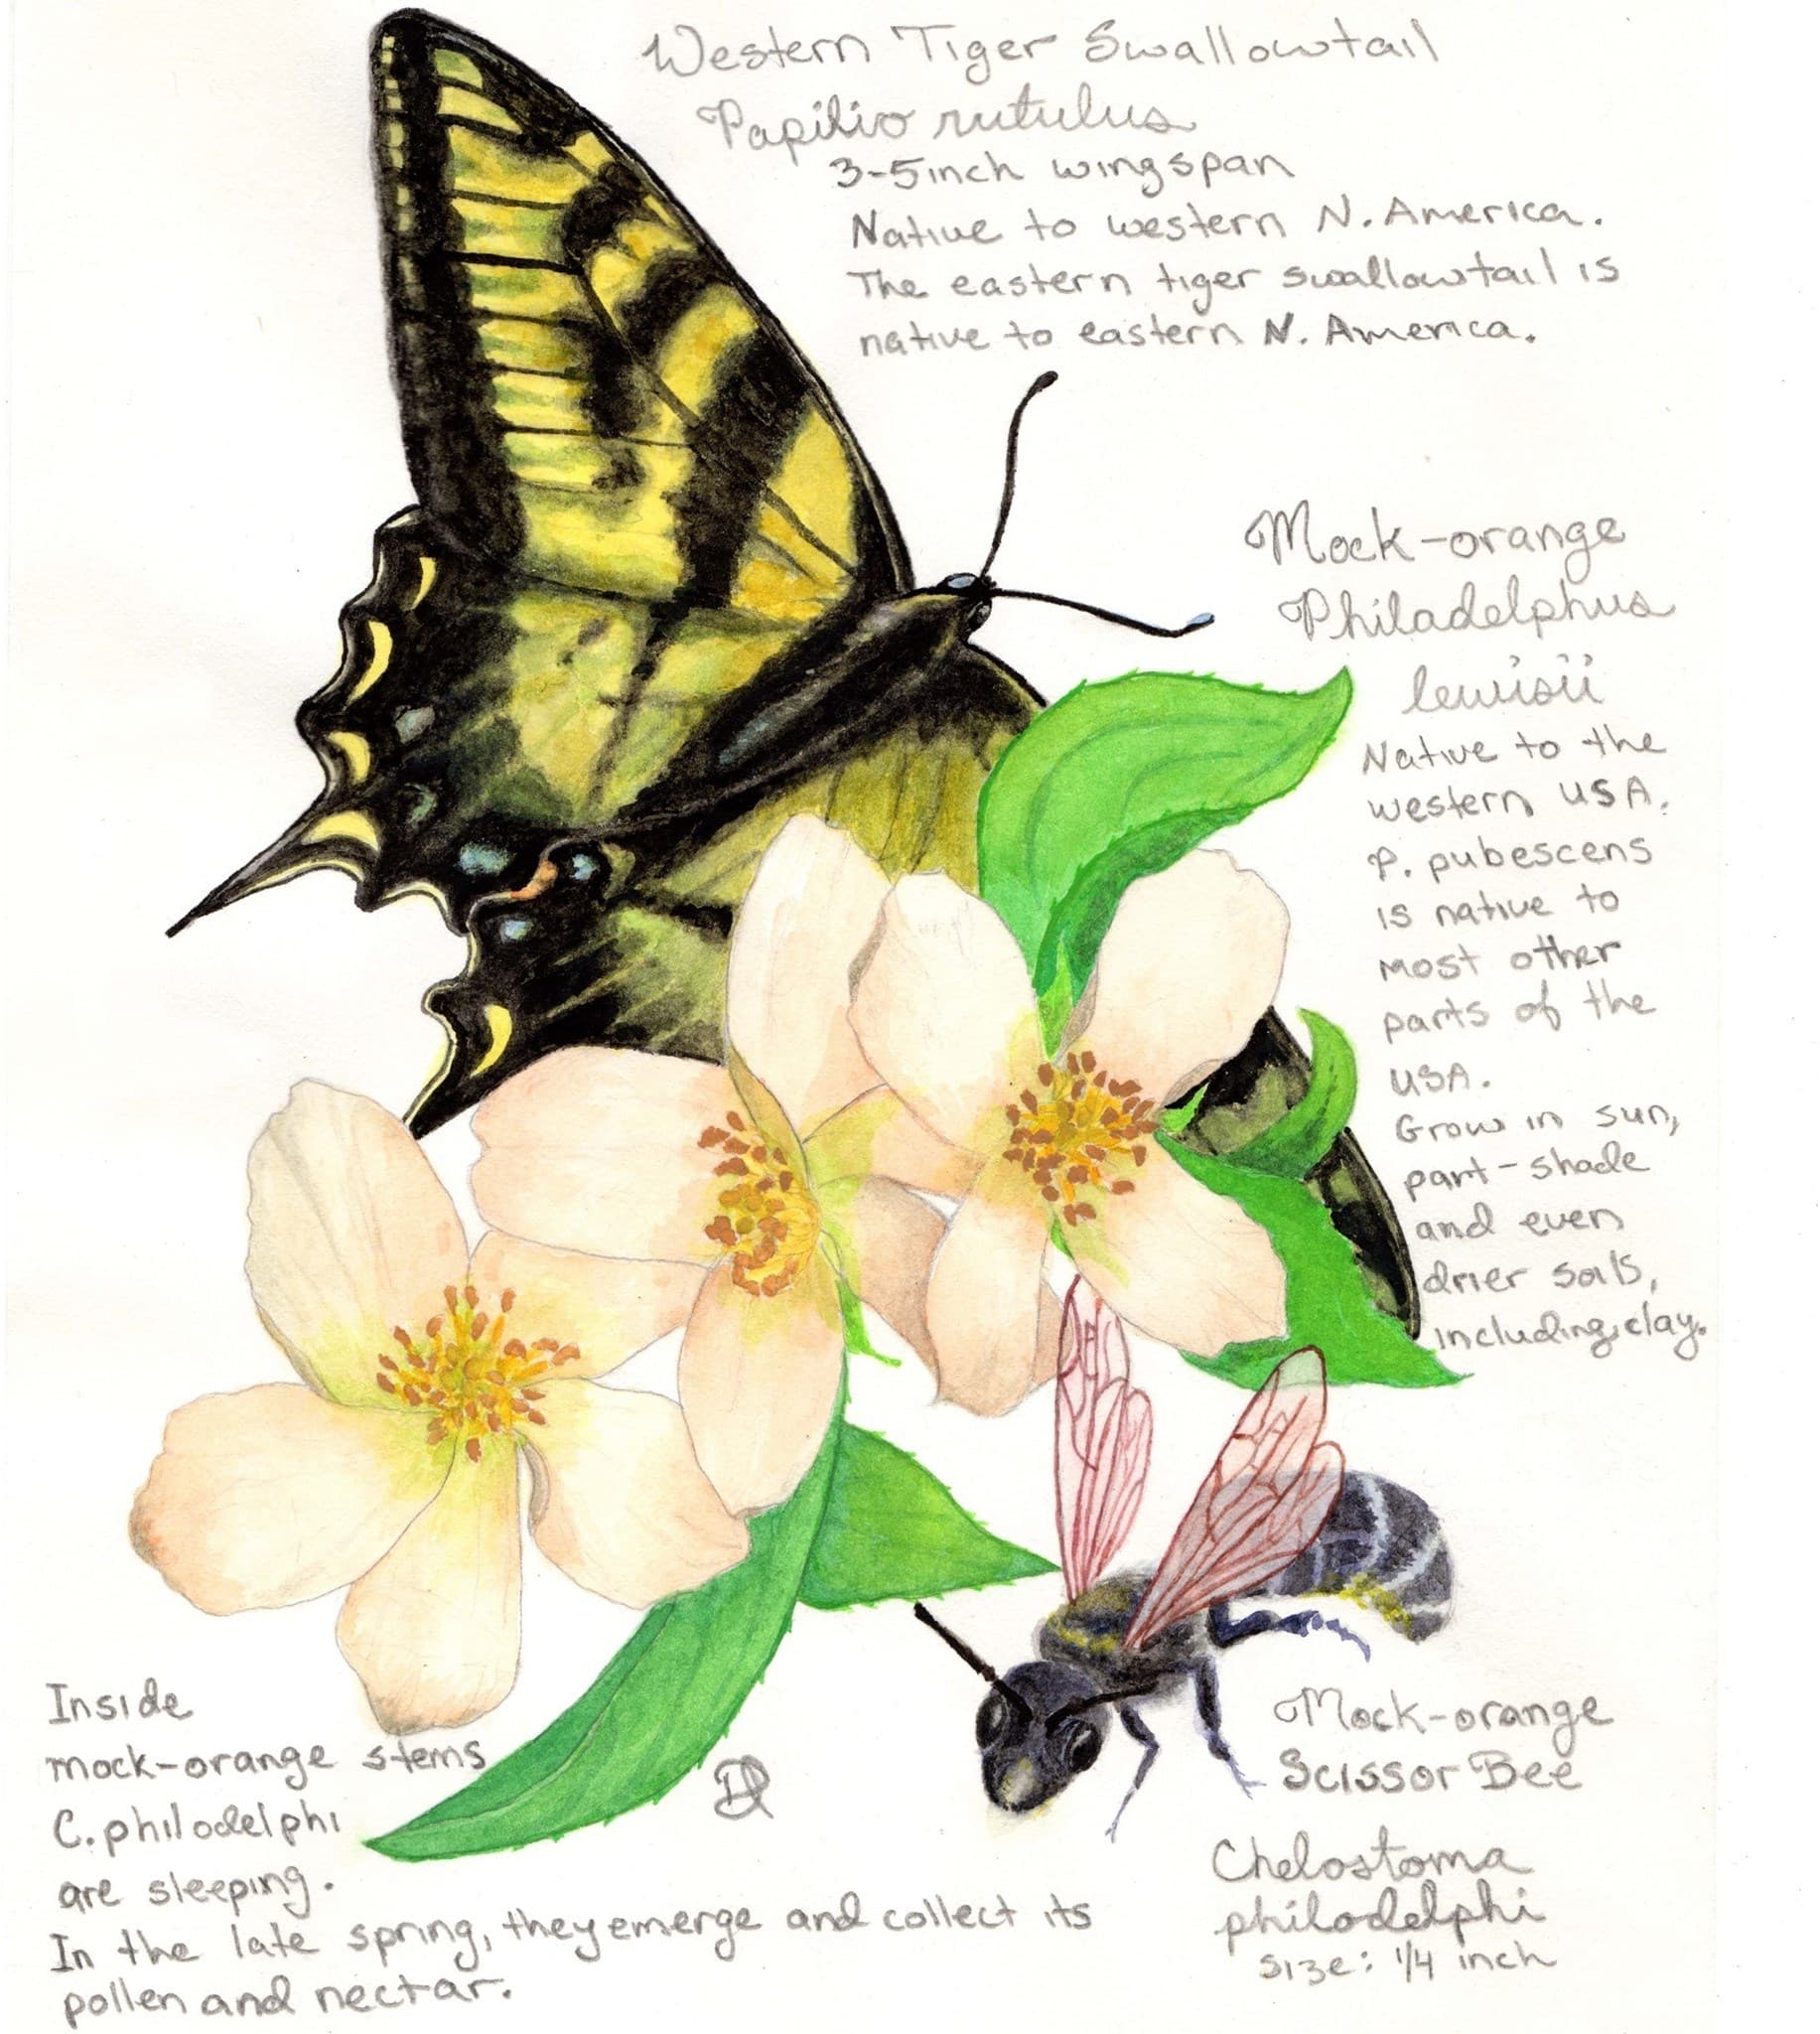 Western Tiger Swallowtail
Papilio rutulus
3-5 inch wingspan
Native to western N. America.
The eastern tiger swallowtail is
native to eastern N. America.
Mock-orange
Philadelphus
lewisii
Native to the
western USA.
P. pubescens
is native to
most other
parts of the
USA.
Grow in sun,
part-shade
and even
drier soils,
including clay.
Inside
mock-orange stems
C. philodelphi
are sleeping.
In the late spring, they emerge and collect its
pollen and nectar.
Mock-orange
Scissor Bee
Chelostoma
philadelphi
size: 1/4 inch